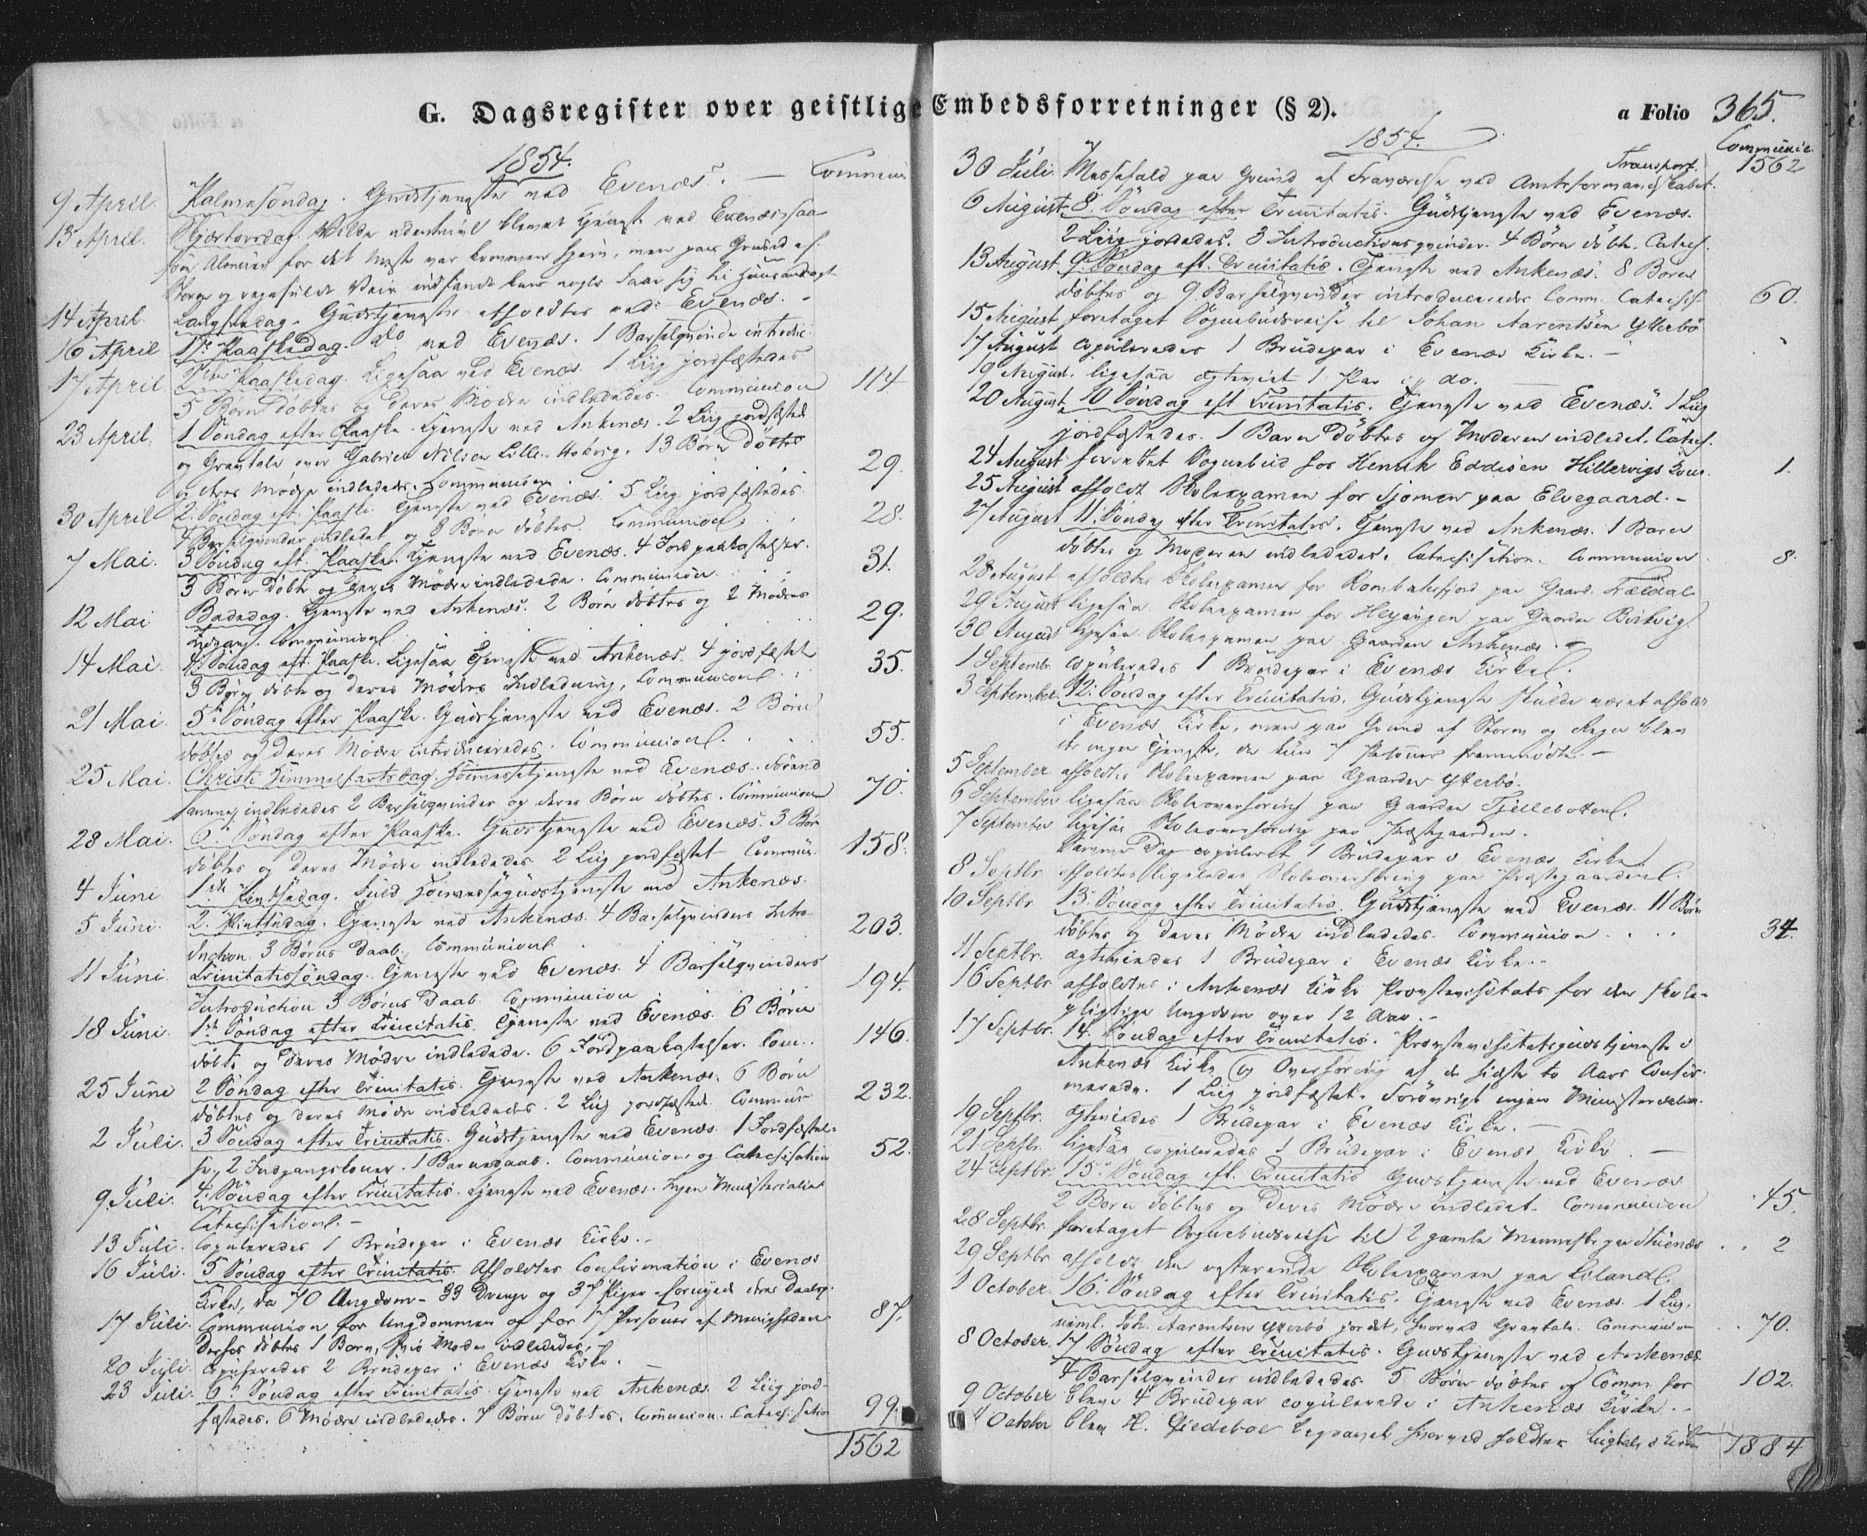 G. Dagsregister over geistlige Embedsforretninger (§ 2).
a Folio 365.
1854.
Commun
9 April. Palmesöndag. Gudstjeneste ved Evenæs. —
13 April. Skjærtorsdag. blevet Tjeneste ved Evenæs, saa-
for det meste var kommen hjem, men paa Grund af
Storm og regnfuldt Veir indfandt kun nogle Faa sig til Huusandagt
14 April. Langfredag. Gudstjeneste afholdtes ved Evenæs. —
16 April 1ste Paaskedag. do ved Evenæs. 1 Barselqvinde introduc.
17 April 2den Paaskedag. Ligesaa ved Evenæs. 1 Liig jordfæstedes
5 Börn döbtes og deres Mödre indlededes. Communion 114.
23 April. 1 Söndag efter Paaske. Tjeneste ved Ankenæs. 2 Liig jordfæstede
og Gravtale over Gabriel Nilsen Lille-Hobvig. 13 Börn döbte
og deres Mödre indledede. Communion 29.
30 April 2. Söndag eft. Paaske. Tjeneste ved Evenæs. 5 Liig jordfæstedes.
4 Barselqvinder indledet og 8 Börn döbtes. Communion 28.
7 Mai. 3 Söndag eft. Paaske. Tjeneste ved Evenæs. 4 Jordpaakastelser.
3 Börn Döbte og deres Mödre indledede. Communion 31.
12 Mai Bededag. Tjeneste ved Ankenæs. 2 Börn döbtes og 2 Mödres
Indgang. Communion 29.
14 Mai. 4. Söndag eft. Paaske. Ligesaa Tjeneste ved Ankenæs. 4 jordfæstet
3 Börn döbte og deres Mödres Indledning, Communion 35.
21 Mai 5te Söndag efter Paaske. Gudstjeneste ved Evenæs. 2 Börn
döbtes og deres Mödre introduceredes. Communion 55.
25 Mai. Christi Himmelfartsdag. Höimessetjeneste ved Evenæs. Forend
samme indlededes 2 Barselqvinder og deres Börn döbtes. Communion 70.
28 Mai. 6. Söndag efter Paaske. Gudstjeneste ved Evenæs. 3 Börn
döbtes og deres Mödre indlededes 2 Liig jordfæstet Commun. 158.
4 Juni 1ste Pintsedag. Fuld Höimessegudstjeneste ved Ankenæs.
5 Juni. 2. Pintsedag. Tjeneste ved Ankenæs. 4 Barselqvinders Intro-
duction. 3 Börns Daab. Communion 203.
11 Juni. Trinitatissöndag. Tjeneste ved Evenæs. 4 Barselqvinders
Introduction 3 Börns Daab. Communion 194.
18 Juni. 1ste Söndag efter Trinitatis. Tjeneste ved Evenæs. 6 Börn
döbte og deres Mödre indledede. 6 Jordpaakastelser. Com.. 146.
25 Juni 2 Söndag efter Trinitatis. Tjeneste ved Ankenæs. 6 Börn
döbtes og deres Mödre indledede. 2 Liig jordfæstede Commun 232.
2 Juli. 3 Söndag efter Trinitatis. Gudstjeneste ved Evenæs. 1 Jordfæstel-
se, 2 Indgangskoner. 1 Barnedaab. Communion og Catechisation 52.
9 Juli. 4. Söndag efter Trinitatis. Tjeneste ved Evenæs. Ingen Ministerialier
Catechisation. —
13 Juli. Copuleredes 1 Brudepar i Evenæs Kirke.
16 Juli. 5 Söndag efter Trinitatis. Afholdtes Confirmation i Evenæs
Kirke, da 70 Ungdom — 33 Drenge og 37 Piger — fornyede deres Daabsp.
17 Juli. Communion for Ungdommen og for 17 Personer af Menigheden 87.
Derfor döbtes 1 Barn, hvis Moder indlededes.
20 Juli. Copuleredes 2 Brudepar i Evenæs Kirke.
23 Juli. 6. Söndag efter Trinitatis. Tjeneste ved Ankenæs. 2 Liig jord-
fæstedes. 6 Mödre indledede. 7 Börn döbtes. Communion. Catechisation 99.
1562
1854.
Communic.
Transport. 1562
30 Juli. Messefald paa Grund af Fraværelse ved Amtsformandskabet.
6 August 8. Söndag efter Trinitatis. Gudstjeneste ved Evenæs.
2 Liig jordedes. 3 Introductionsqvinder. 4 Börn döbte. Catech.
13 August 9. Söndag eft. Trinitatis. Tjeneste ved Ankenæs. 8 Börn
döbtes og 9 Barselqvinder introduceredes Comm. Catechis. 60.
15 August foretaget Sognebudsreise til Johan Aarentsen Ytterbö
17 August copuleredes 1 Brudepar i Evenæs Kirke. —
19 August. ligesaa ægteviet 1 Par i do.
20 August 10 Söndag eft Trinitatis. Tjeneste ved Evenæs. 1 Liig
jordfæstedes. 1 Barn Döbtes og Moderen indledet. Catech.
24 August forrettet Sognebud hos Henrik Eddisen Hillervigs Kone. 1.
25 August afholdt Skoleexamen for Sjomen paa Elvegaard. —
27 August 11. Söndag efter Trinitatis. Tjeneste ved Ankenæs. 1 Barn
döbtes og Moderen indlededes. Catechisation. Communion 8.
28 August afholdtes Skoleexamen for Rombaksfjord paa Gaard. Trældal.
29 August ligesaa Skoleexamen for paa Gaarden
30 August ligesaa Skoleexamen paa Gaarden Ankenæs. —
1 Septembr. copuleredes 1 Brudepar i Evenæs Kirke.
3 September. 12. Söndag efter Trinitatis. Gudstjeneste skulde været afholdt
i Evenæs Kirke, men paa Grund af Storm og Regn blev
der ingen Tjeneste, da kun 7 Personer fremmödte. —
5 September afholdtes Skoleexamen paa Gaarden Ytterbö.
6 September ligesaa Skoleoverhöring paa Gaarden Fjellebotten.
7 September ligesaa Skoleoverhöring paa Præstegaarden.
Samme Dag copuleret 1 Brudepar i Evenæs Kirke.
8 Septbr. afholdtes ligeledes Skoleoverhöring paa Præstegaarden.
10 Septbr 13. Söndag efter Trinitatis. Gudstjeneste ved Evenæs. 11 Börn
döbtes og deres Mödre indlededes. Communion . . . . 34.
11 Septbr. ægteviedes 1 Brudepar i Evenæs Kirke.
16 Septbr afholdtes i Ankenæs Kirke Provstevisitats for den skole-
pligtige Ungdom over 12 Aar. —
17 Septbr. 14. Söndag efter Trinitatis. Provstevisitatsgudstjeneste i
Ankenæs Kirke og Overhöring af de sidste to Aars Confir-
merede. 1 Liig jordfæstet. Forövrigt ingen Ministerialier.
19 Septbr. ægteviedes 1 Brudepar i Evenæs Kirke. —
21 Septbr ligesaa copuleredes 1 Brudepar i Evenæs Kirke. —
24 Septbr. 15. Söndag eft. Trinitatis Gudstjeneste ved Evenæs
2 Börn döbtes og deres Mödre indledet. Communion 45.
28 Septbr. foretaget Sognebudsreise til 2 gamle Mennesker paa . . 2
29 Septbr afholdt den resterende Skoleexamen paa Liland.
1 October. 16. Söndag efter Trinitatis. Tjeneste ved Evenæs. 1 Liig,
neml. Joh. Aarentsen Ytterbö jordet, hvorved Gravtale. Communion 70.
8 October. 17 Söndag efter Trinitatis. Gudstjeneste ved Ankenæs
4 Barselqvinder indlededes 5 Börn döbtes og Comm. for 102.
9 October bleve 4 Brudepar copulerede i Ankenæs Kirke. —
11 October blev H. begravet hvorved holdtes Liigtale i Kirken 1884